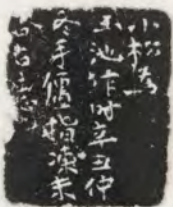 小松為
玉池作時辛丑仲
冬手僵指凍未